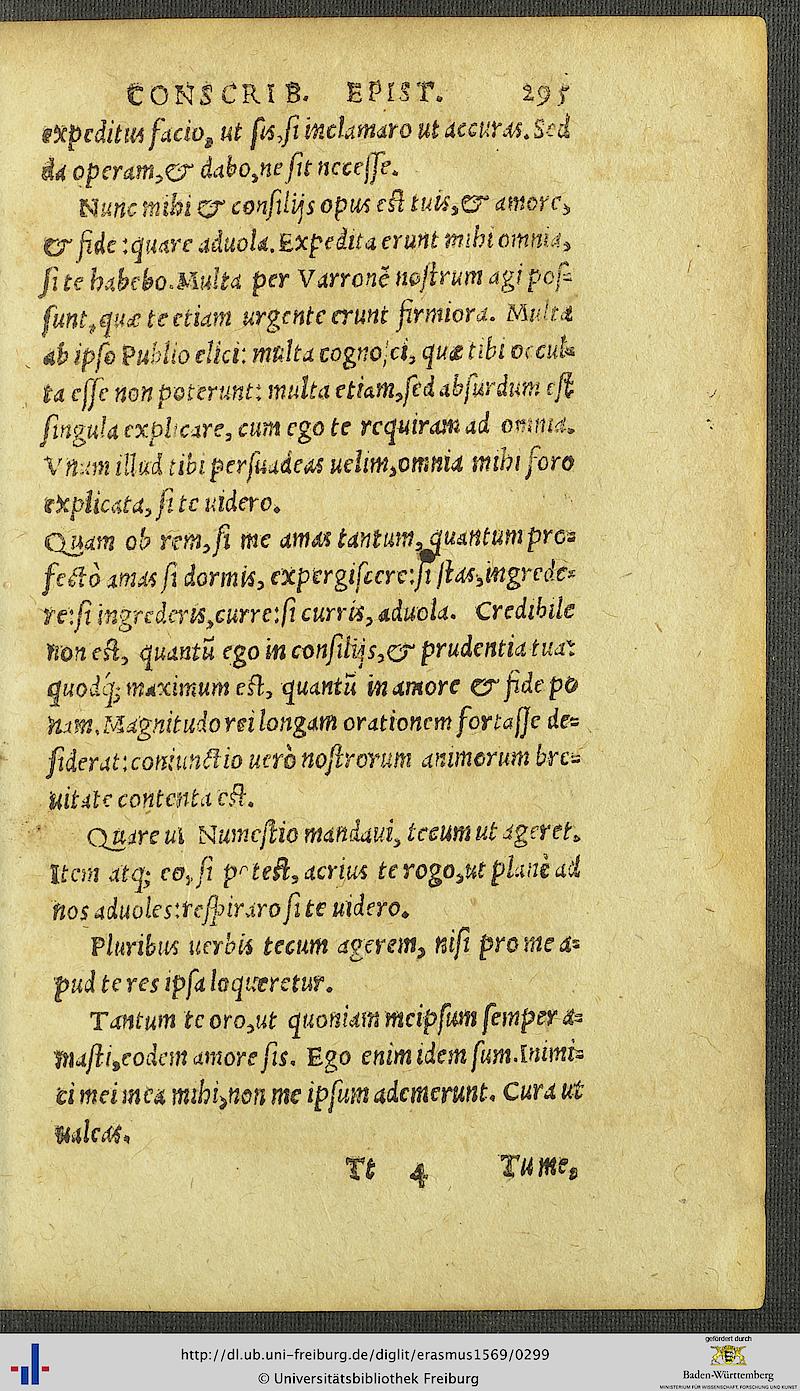 CONSCRIB. EPIST. 295
expeditus facio, ut sis, si inclamaro ut accuras. Sed
da operam, & dabo, ne sit necesse.
Nunc mihi & consilijs opus est tuis, & amore,
& fide: quare aduola. Expedita erunt mihi omnia,
si te habebo. Multa per Varronē nostrum agi pos-
sunt, quæ te etiam urgente erunt firmiora. Multa
ab ipso Publio elici: multa cognosci, quæ tibi occul-
ta esse non poterunt: multa etiam, sed absurdum est
singula explicare, cum ego te requiram ad omnia.
Vnum illud tibi persuadeas uelim, omnia mihi fore
explicata, si te uidero.
Quam ob rem, si me amas tantum, quantum pro-
fectò amas si dormis, expergiscere: si stas, ingrede-
re: si ingrederis, curre: si curris, aduola. Credibile
non est, quantū ego in consilijs, & prudentia tua:
quodq́; maximum est, quantū in amore & fide po
nam. Magnitudo rei longam orationem fortasse de-
siderat: coniunctio uerò nostrorum animorum bre-
uitate contenta est.
Quare ut Numestio mandaui, tecum ut ageret.
Item atq; eo, si potest, acrius te rogo, ut planè ad
nos aduoles: respiraro si te uidero.
Pluribus uerbis tecum agerem, nisi pro me a-
pud te res ipsa loqueretur.
Tantum te oro, ut quoniam meipsum semper a-
masti, eodem amore sis. Ego enim idem sum. Inimi-
ci mei mea mihi, non me ipsum ademerunt. Cura ut
ualeas.
Tt 4 Tu me,
http://dl.ub.uni-freiburg.de/diglit/erasmus1569/0299
© Universitätsbibliothek Freiburg
gefördert durch
Baden-Württemberg
MINISTERIUM FÜR WISSENSCHAFT, FORSCHUNG UND KUNST